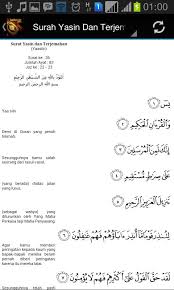 01:00
Surah Yasin Dan Terjem
Surat Yasin dan Terjemahan
(Yaasiin)
Surat ke: 36
Jumlah Ayat: 83
Juz ke: 22 - 23
أَعُوْذُ بِاللهِ مِنَ الشَّيْطَانِ الرَّجِيْمِ
بِسْمِ اللهِ الرَّحْمٰنِ الرَّحِيْمِ
يسٓ ﴿١﴾
Yaa siin
وَالْقُرْءَانِ الْحَكِيمِ ﴿٢﴾
Demi Al Quran yang penuh hikmah,
إِنَّكَ لَمِنَ الْمُرْسَلِينَ ﴿٣﴾
Sesungguhnya kamu salah seorang dari rasul-rasul,
عَلَىٰ صِرَاطٍ مُّسْتَقِيمٍ ﴿٤﴾
(yang berada) diatas jalan yang lurus,
تَنزِيلَ الْعَزِيزِ الرَّحِيمِ ﴿٥﴾
(sebagai wahyu) yang diturunkan oleh Yang Maha Perkasa lagi Maha Penyayang.
لِتُنذِرَ قَوْمًا مَّا أُنذِرَ ءَابَاؤُهُمْ فَهُمْ غَافِلُونَ ﴿٦﴾
Agar kamu memberi peringatan kepada kaum yang bapak-bapak mereka belum pernah diberi peringatan, karena itu mereka lalai.
لَقَدْ حَقَّ الْقَوْلُ عَلَىٰ أَكْثَرِهِمْ فَهُمْ لَا يُؤْمِنُونَ ﴿٧﴾
Sesungguhnya telah pasti